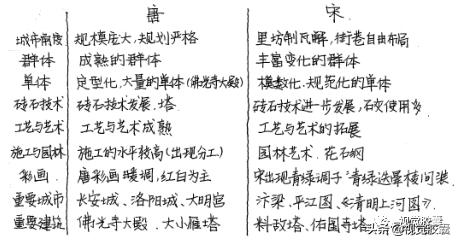 唐 宋
城市制度 规模庞大,规划严格 里坊制瓦解,街巷自由布局
群体 成熟的群体 丰富变化的群体
单体 定型化、大量的单体(佛光寺大殿) 模数化、规范化的单体
砖石技术 砖石技术发展、塔 砖石技术进一步发展,石材使用多
工艺与艺术 工艺与艺术成熟 工艺与艺术的拓展
施工与园林 施工的水平较高(出现分工) 园林艺术、花石纲
彩画 唐彩画暖调,红白为主 宋出现青绿调子"青绿迭晕棱间装
重要城市 长安城、洛阳城、大明宫 汴梁、平江图、《清明上河图》
重要建筑 佛光寺大殿、大小雁塔 料敌塔、佑国寺塔
头条 @视觉胶囊